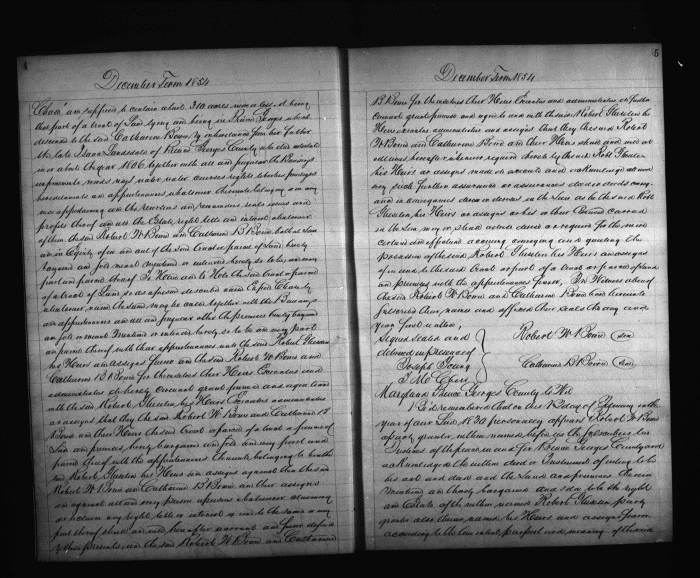 4
December Term 1854
"Chaci" are supposed to contain about 310 acres more or less it being
that part of a tract of Land lying and being in Prince Georges which
descended to the said Catharine Bowie by inheritance from her Father
the late Isaac Lansdale of Prince Georges County who died intestate
in or about the year together with all and singular the Buildings
improvements roads ways water water courses rights liberties privileges
hereditaments and appurtenances whatsoever thereunto belonging or in any
wise appertaining and the reversions and remainders rents issues and
profits thereof and all the Estate right title and interest whatsoever
of them the said Robert W Bowie and Catharine B Bowie both at Law
and in Equity of in and out of the said tract or parcel of Land hereby
bargained and sold meant mentioned or intended hereby to be and every
part and parcel thereof To Have and to Hold the said tract or parcel
of a tract of Land so as aforesaid
whatsoever name the same may be called together with the Buildings
and appurtenances and all and singular other the premises hereby bargained
and sold or meant mentioned or intended hereby so to be and every part
and parcel thereof with their appurtenances unto the said Robert
his Heirs and assigns forever and the said Robert W Bowie and
Catharine B Bowie for themselves their Heirs Executors and
administrators do hereby covenant grant promise and agree to and
with the said Robert his Heirs Executors administrators
or assigns that they the said Robert W Bowie and Catharine B
Bowie and their Heirs the said tract or parcel of a tract & premises of
Land and premises hereby bargained and sold and every part and
parcel thereof with the appurtenances thereunto belonging to him the
said Robert his Heirs and assigns against them the said
Robert W Bowie and Catharine B Bowie and their assigns
and against all and every person or persons whatsoever claiming
or to claim any right title or interest in and to the same or any
part thereof shall and will hereafter warrant and forever defend
by these presents and the said Robert W Bowie and Catharine
5
December Term 1854
B Bowie for themselves their Heirs Executors and administrators do further
covenant grant promise and agree to and with the said Robert his
Heirs executors administrators and assigns that they the said Robert
W Bowie and Catharine Bowie and their Heirs shall and will at
all times hereafter whenever required thereto by the said Robt
his Heirs or assigns made do execute and acknowledge all and
every such further assurance or assurances deed or deeds convey-
ance or conveyances devise or devises in the Law as the said Robt
his Heirs or assigns or his or their Counsel learned
in the Law may or shall advise devise or require for the more
certain and effectual assuring conveying and quieting the
possession of the said Robert his Heirs and assigns
of in and to the said tract or part of a tract or parcel of Land
and premises with the appurtenances forever, In Witness whereof
the said Robert W Bowie and Catharine Bowie have hereunto
subscribed their names and affixed their seals the day and
year first written,
Signed sealed and
delivered in presence of
Joseph Young
Robert W Bowie (seal)
Catharine B Bowie (seal)
Maryland Prince Georges County to Wit
Be it remembered that on this day of February in the
year of our Lord 1830 personally appears Robert W Bowie
party grantor within named before us the subscribers two
Justices of the peace in and for Prince Georges County and
acknowledges the within deed or Instrument of writing to be
his act and deed and the Land and premises therein
mentioned and thereby bargained and sold to be the right
and Estate of the within named Robert party
grantee also therein named his Heirs and assigns forever
according to the true intent purport and meaning of the said